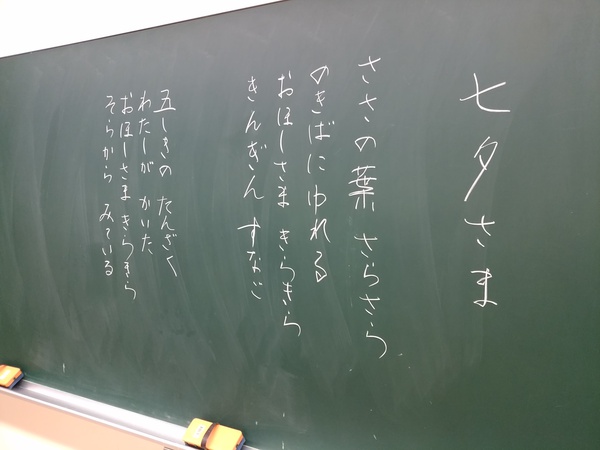 七夕さま
ささの葉 さらさら
のきばにゆれる
おほしさま きらきら
きんぎん すなご
五しきの たんざく
わたしが かいた
おほしさま きらきら
そらから みている